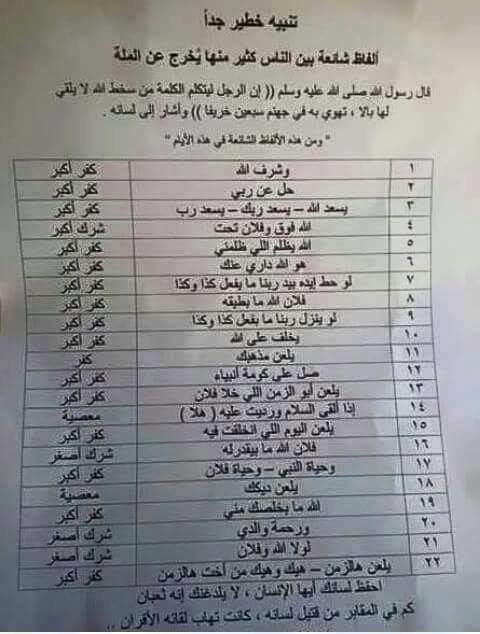 تنبيه خطير جداً
ألفاظ شائعة بين الناس كثير منها يُخرج عن الملة
قال رسول الله صلى الله عليه وسلم (( إن الرجل ليتكلم الكلمة من سخط الله لا يلقي
لها بالا ، تهوي به في جهنم سبعين خريفا )) وأشار إلى لسانه .
" ومن هذه الألفاظ الشائعة في هذه الأيام "
١ وشرف الله كفر أكبر
٢ حل عن ربي كفر أكبر
٣ يسعد الله – يسعد ربك – يسعد رب كفر أكبر
٤ الله فوق وفلان تحت شرك أكبر
٥ الله يظلم اللي ظلمني كفر أكبر
٦ هو الله داري عنك كفر أكبر
٧ لو حط إيده بيد ربنا ما يفعل كذا وكذا كفر أكبر
٨ فلان الله ما بطيقه كفر أكبر
٩ لو ينزل ربنا ما بفعل كذا وكذا كفر أكبر
١٠ يخلف على الله كفر أكبر
١١ يلعن مذهبك كفر
١٢ صل على كومة أنبياء كفر أكبر
١٣ يلعن أبو الزمن اللي خلا فلان كفر أكبر
١٤ إذا ألقى السلام ورديت عليه ( هلا ) معصية
١٥ يلعن اليوم اللي انخلقت فيه كفر أكبر
١٦ فلان الله ما بيقدرله شرك أصغر
١٧ وحياة النبي – وحياة فلان كفر أكبر
١٨ يلعن ديكك معصية
١٩ الله ما بخلصك مني كفر أكبر
٢٠ ورحمة والدي شرك أصغر
٢١ لولا الله وفلان شرك أصغر
٢٢ يلعن هالزمن – هيك وهيك من أخت هالزمن كفر أكبر
احفظ لسانك أيها الإنسان ، لا يلدغنك إنه ثعبان
كم في المقابر من قتيل لسانه ، كانت تهاب لقائه الأقران ..